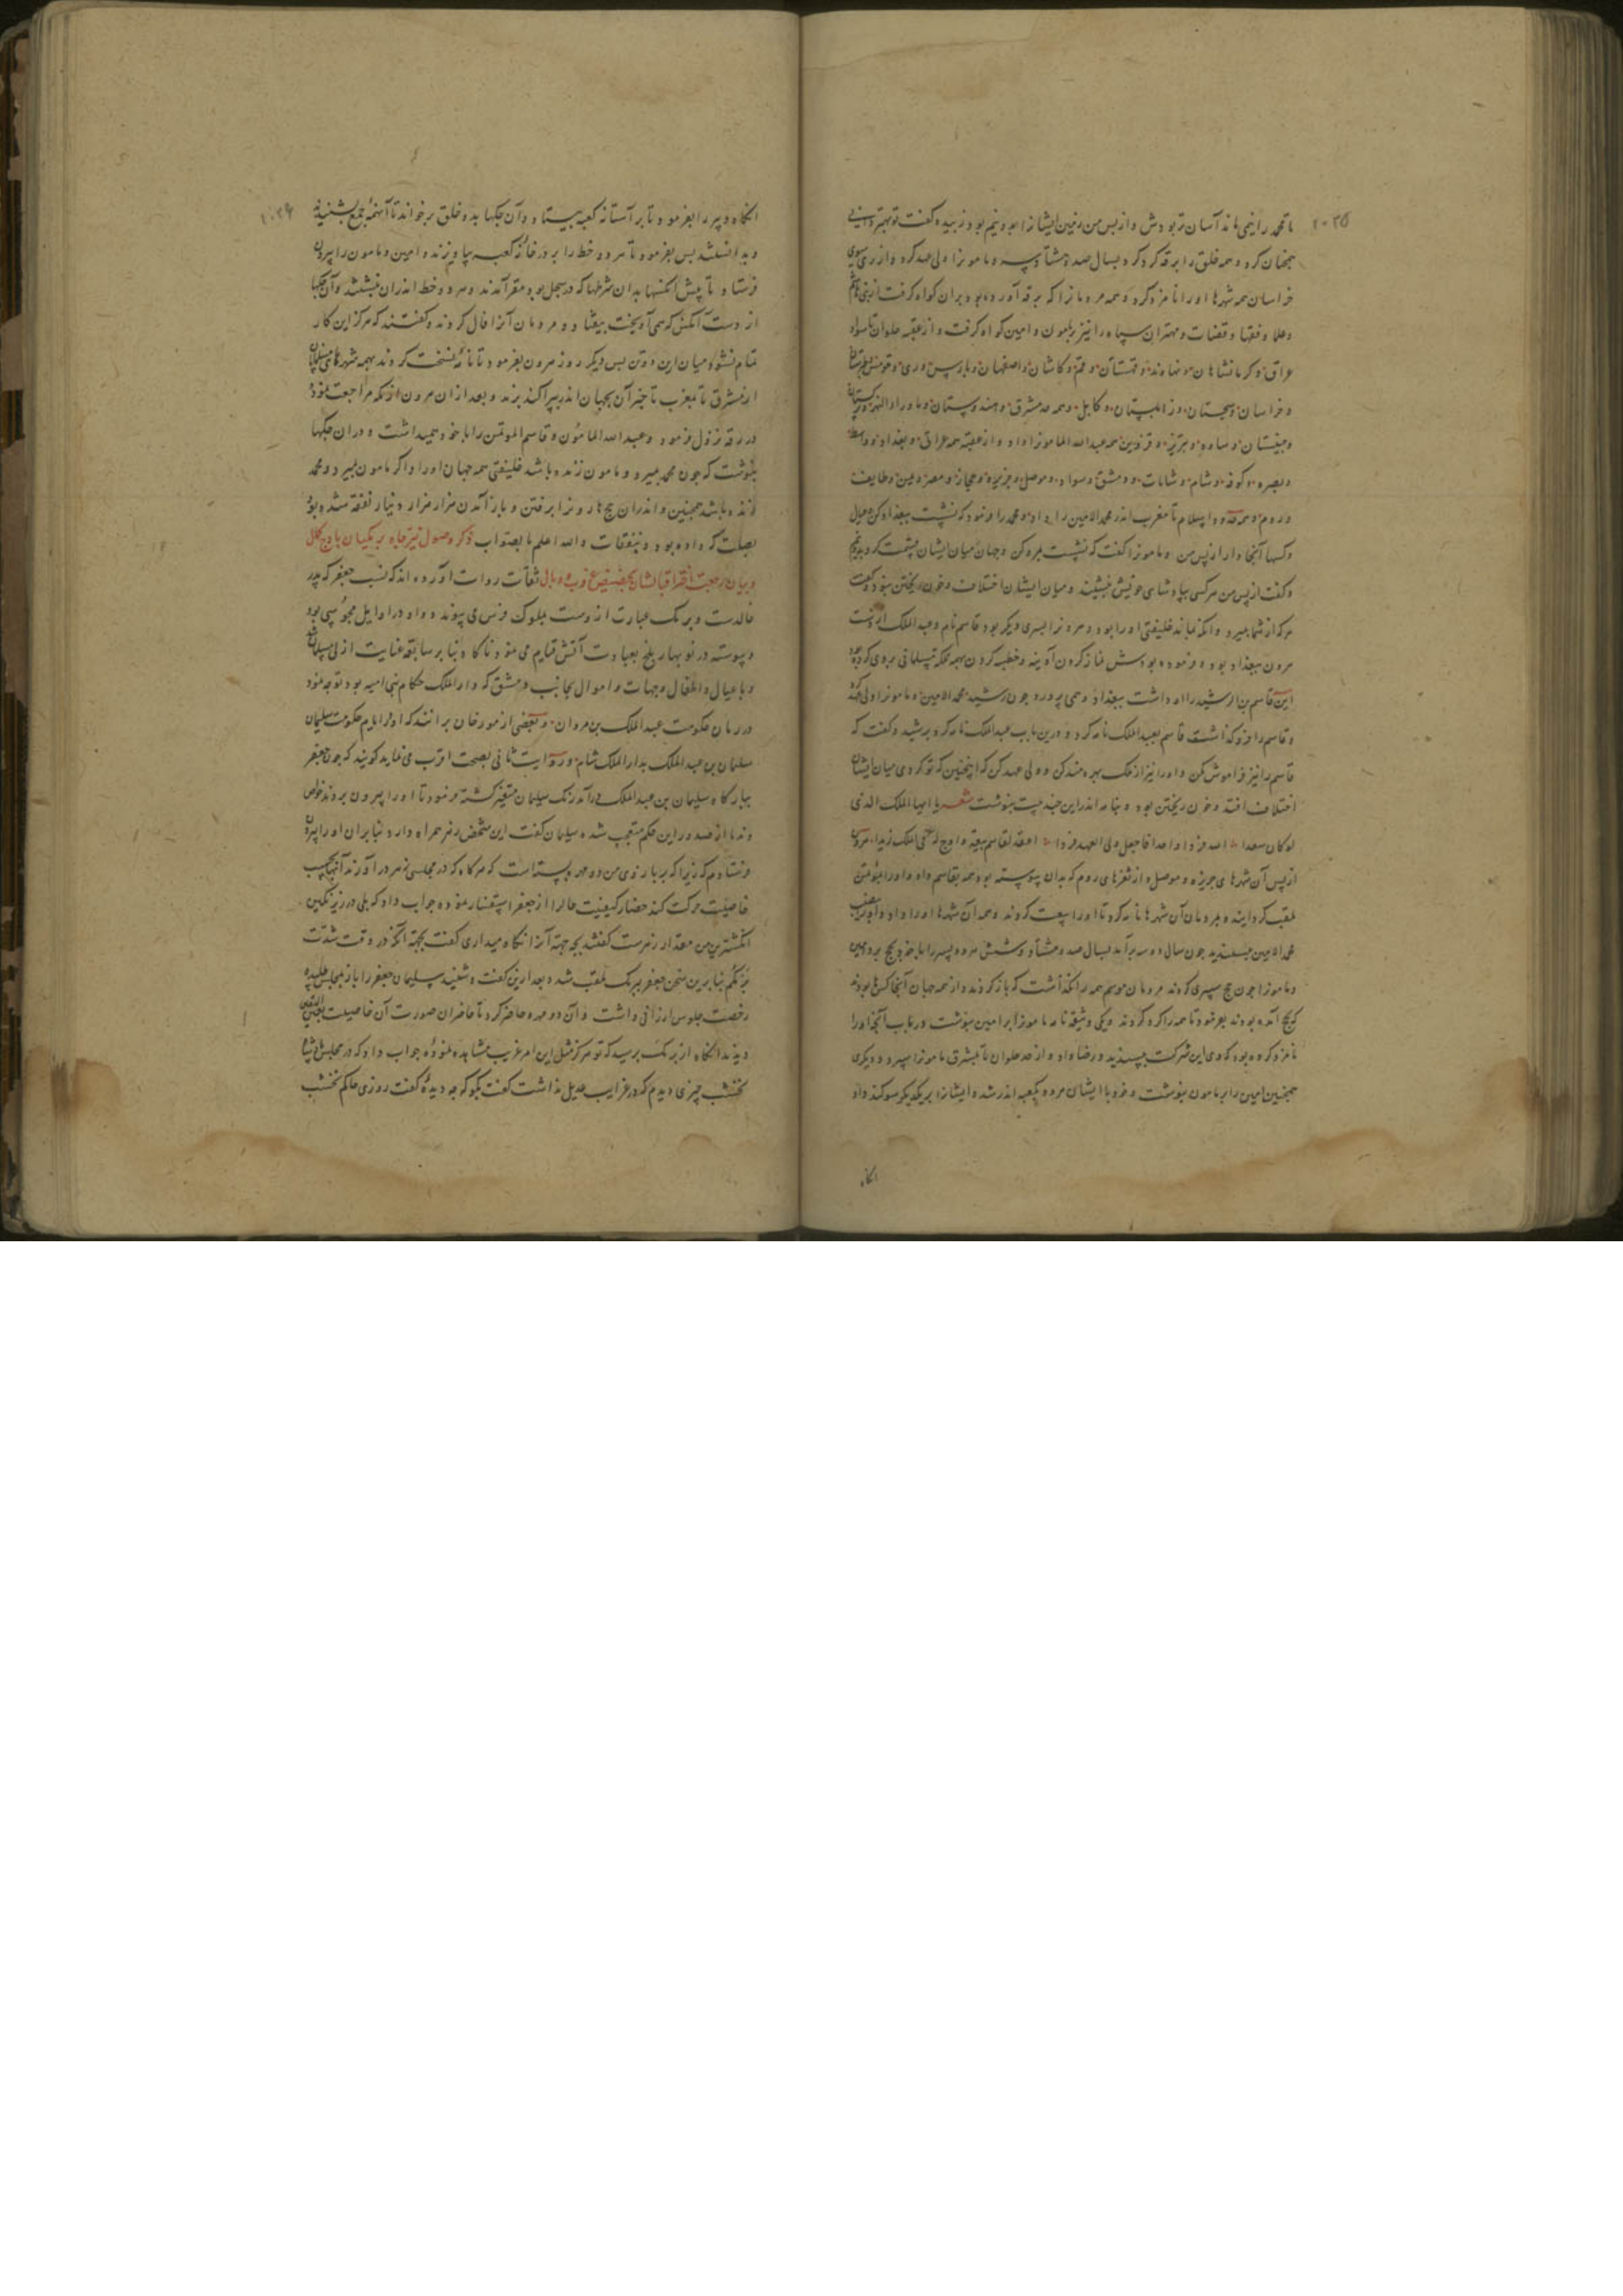 ۱۰۳۵
تا محمد را نمی ماند آسان تر بودش و از پس من رفتن ایشانرا بیم بود زبیده گفت تو بهتر دانی
همچنان کرد و همه خلق را برقه گرد کرد بسال صد و هشتاد و سه و مامونرا ولی عهد کرد و از ری سوی
خراسان همه شهرها او را نامزد کرد و همه مردمانرا که برقه آورده بود بران گواه گرفت از بنی هاشم
و علما و فقها و قضات و مهتران سپاه را نیز مامون و امین گواه گرفت و از عقبه حلوان تا سواد
عراق و کرمانشاهان و نهاوند و قهستان و قم و کاشان و اصفهان و پارس و ری و قومش و طبرستان
و خراسان و سجستان و زابلستان و کابل و همه مشرق و هندوستان و ماوراء النهر و ترکستان
و ساوه و تبریز و قزوین همه عبدالله المامونرا داد و از عقبه همه عراق و بغداد و واسط
و بصره و کوفه و شام و شامات و دمشق و سواد و موصل و جزیره و حجاز و مصر و یمن و طایف
و روم و همه اسلام تا مغرب اندر محمد الامین را داد و محمد را فرمود که نشست ببغداد کن و عیال
و کسها آنجا دار از پس من و مامونرا گفت که نشست بمرو کن و جهان میان ایشان قسمت کرد
و گفت از پس من هرکسی بپادشاهی خویش بنشیند و میان ایشان اختلاف و خون ریختن نبود و گفت
هرکه از شما بمیرد و آنکه بماند خلیفتی او را بود و هرونرا پسری دیگر بود قاسم نام و عبدالملک
هرون ببغداد بود و فرموده بودش نماز کردن آدینه و خطبه کردن
این قاسم بن الرشید را او داشت ببغداد و همی پرورد چون رشید محمد الامین و مامونرا ولی عهد کرد
و قاسم را فرو گذاشت قاسم بعبدالملک نامه کرد و درین باب عبدالملک نامه کرد برشید و گفت که
قاسم را نیز فراموش مکن و او را نیز از ملک بهره مند کن و ولی عهد کن که اینچنین که تو کردی میان ایشان
اختلاف افتد و خون ریختن بود و بنامه اندر این چند بیت بنوشت شعر یا ایها الملک الذی
لو کان سعدا الله فرد واحد فاجعل ولی العهد فردا اعقد لقاسم بیعة و اوج له فی الملک زندا هرون
از پس آن شهرهای جزیره و موصل و از ثغرهای روم که بدان پیوسته بود همه بقاسم داد و او را مؤتمن
لقب گردانید و بمردمان آن شهرها نامه کرد تا او را بیعت کردند و همه آن شهرها او را داد
محمد الامین بپسندید چون سال دو سه برآمد بسال صد و هشتاد و شش هر دو پسر را با خود بحج برد امین
و مامونرا چون حج سپری کردند مردمان موسم همه را نگذاشت که باز گردند و از همه جهان آنجا کسها بودند
که بحج آمده بودند بفرمود تا همه را گرد کردند و یکی وثیقه نامه مامونرا بر امین بنوشت در باب آنچه او را
نامزد کرده بود که وی این شرکت بپسندید و رضا داد و از حد حلوان تا بمشرق مامونرا سپرد و دیگری
همچنین امین را بر مامون بنوشت و خود با ایشان هر دو بکعبه اندر شد و ایشانرا بر یکدیگر سوگند داد
انگاه
۱۰۳۶
انگاه دبیر را بفرمود تا بر آستانه کعبه بیستاد و آن چکها بدو خلق برخواند تا آنهمه جمع بشنیدند
و بدانستند پس بفرمود تا هر دو خط را بر در خانه کعبه بیاویزند و امین و مامون را بیرون
فرستاد تا پیش آنکسها بدان شرطها که در سجل بود مقر آمدند و هر دو خط اندران نبشتند و آن چکها
از دست آنکس که همی آویخت بیفتاد و مردمان آنرا فال کردند و گفتند که هرگز این کار
تمام نشود میان این دو تن پس دیگر روز هرون بفرمود تا نامه نسخت کردند بهمه شهرهای مسلمانان
از مشرق تا بمغرب تا خبر آن بجهان اندر پراکنده بزند و بعد از ان هرون از مکه مراجعت نمود
در رقه نزول فرمود و عبدالله المامون و قاسم المؤتمن را با خود همیداشت و در ان چکها
بنوشت که چون محمد بمیرد و مامون زنده باشد خلیفتی همه جهان او را و اگر مامون بمیرد و محمد
زنده باشد همچنین و اندران حج هارونرا برفتن و باز آمدن هزار هزار دینار نفقه شده بود
بصلت که داده بود و بنفقات و الله اعلم بالصواب ذکر وصول نیر جاه برمکیان باوج کمال
و بیان رجعت اختر اقبالشان بحضیض غروب و وبال ثقات روات آورده اند که نسب جعفر که پدر
خالدست و برمک عبارت ازوست بملوک فرس می پیوندد و او در اوایل مجوسی بود
و پیوسته در نوبهار بلخ بعبادت آتش قیام می نمود ناگاه بنابر سابقه عنایت ازلی مسلمان شد
و با عیال و اطفال و جهات و اموال بجانب دمشق که دار الملک حکام بنی امیه بود توجه نمود
در زمان حکومت عبدالملک بن مروان و بعضی از مورخان برانند که او در ایام حکومت سلیمان
سلیمان بن عبدالملک بدار الملک شام و روایت ثانی بصحت اقرب می نماید گویند که چون جعفر
ببارگاه سلیمان بن عبدالملک درآمد رنگ سلیمان متغیر گشته فرمود تا او را بیرون بردند خواص
و ندما از صدور این حکم متعجب شده سلیمان گفت این شخص زهر همراه دارد بنابران او را بیرون
فرستادم که زیرا که بر بازوی من دو مهره بسته است که هرگاه که در مجلس زهر در آورند آنها بحسب
خاصیت حرکت کنند حضار کیفیت حال را از جعفر استفسار نموده جواب داد که بلی در زیر نگین
انگشترین من مقدار زهرست گفتند بچه جهة آنرا نگاه میداری گفت بجهة آنکه در وقت شدت
بزمکم بنابرین سخن جعفر ببرمک ملقب شد و بعد ازین گفت و شنید سلیمان جعفر را باز بمجلس طلبیده
رخصت جلوس ارزانی داشت و آن دو مهره حاضر کرد تا حاضران صورت آن خاصیت
دیدند انگاه از برمک پرسید که تو هرگز مثل این امر غریب مشاهده نموده جواب داد که در مجلس پادشاه
نخشب چیزی دیدم که در غرایب عدیل نداشت گفت بگو که چه دیده گفت روزی حاکم نخشب